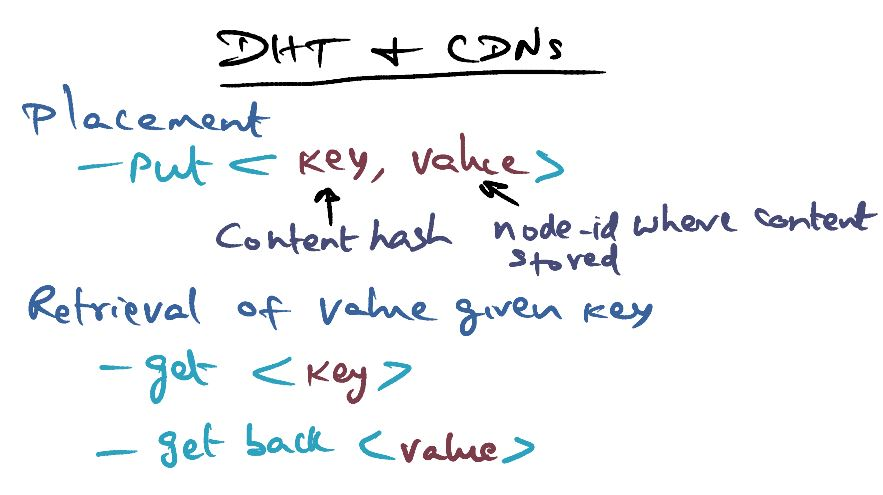 DHT + CDNs
Placement
- put < key, value >
Content hash
node-id where content
stored
Retrieval of value given key
- get < key >
- get back < value >